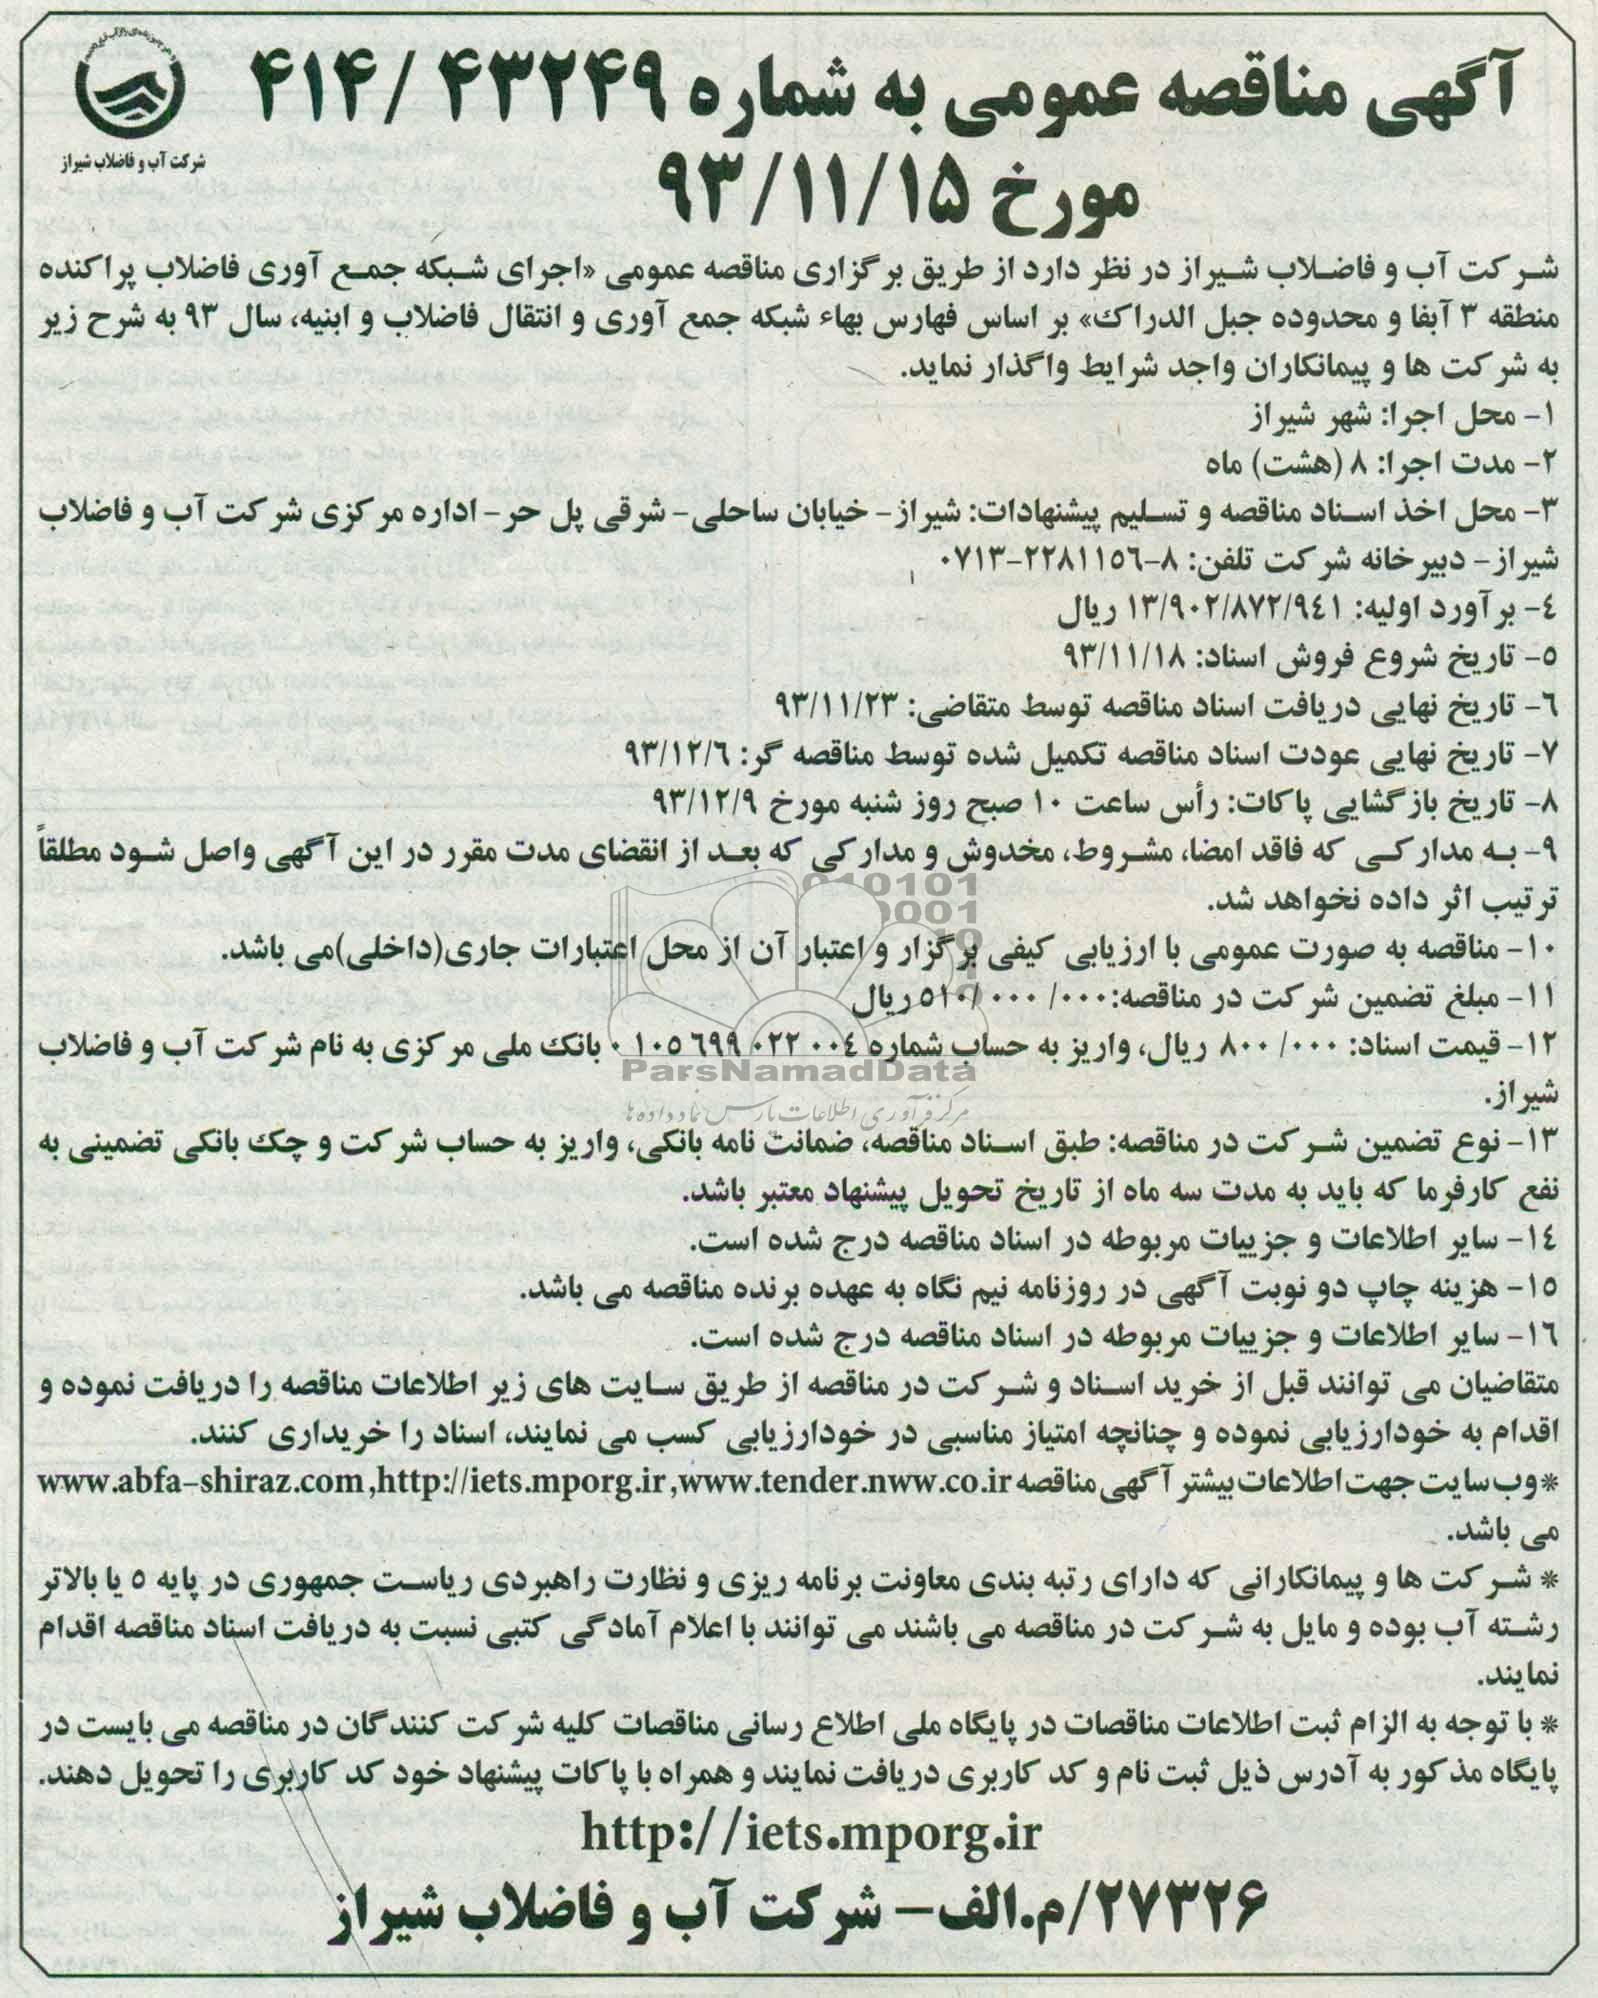 آگهی مناقصه عمومی به شماره ۴۳۲۴۹ /۴۱۴
مورخ ۹۳/۱۱/۱۵
شرکت آب و فاضلاب شیراز
شرکت آب و فاضلاب شیراز در نظر دارد از طریق برگزاری مناقصه عمومی «اجرای شبکه جمع آوری فاضلاب پراکنده
منطقه ۳ آبفا و محدوده جبل الدراک» بر اساس فهارس بهاء شبکه جمع آوری و انتقال فاضلاب و ابنیه، سال ۹۳ به شرح زیر
به شرکت ها و پیمانکاران واجد شرایط واگذار نماید.
۱- محل اجرا: شهر شیراز
۲- مدت اجرا: ۸ (هشت) ماه
۳- محل اخذ اسناد مناقصه و تسلیم پیشنهادات: شیراز- خیابان ساحلی- شرقی پل حر- اداره مرکزی شرکت آب و فاضلاب
شیراز- دبیرخانه شرکت تلفن: ۸-۲۲۸۱۱۵۶-۰۷۱۳
۴- برآورد اولیه: ۱۳/۹۰۲/۸۷۲/۹۴۱ ریال
۵- تاریخ شروع فروش اسناد: ۹۳/۱۱/۱۸
۶- تاریخ نهایی دریافت اسناد مناقصه توسط متقاضی: ۹۳/۱۱/۲۳
۷- تاریخ نهایی عودت اسناد مناقصه تکمیل شده توسط مناقصه گر: ۹۳/۱۲/۶
۸- تاریخ بازگشایی پاکات: رأس ساعت ۱۰ صبح روز شنبه مورخ ۹۳/۱۲/۹
۹- به مدارکی که فاقد امضا، مشروط، مخدوش و مدارکی که بعد از انقضای مدت مقرر در این آگهی واصل شود مطلقاً
ترتیب اثر داده نخواهد شد.
۱۰- مناقصه به صورت عمومی با ارزیابی کیفی برگزار و اعتبار آن از محل اعتبارات جاری(داخلی)می باشد.
۱۱- مبلغ تضمین شرکت در مناقصه:۵۱۰/۰۰۰/۰۰۰ریال
۱۲- قیمت اسناد: ۸۰۰/۰۰۰ ریال، واریز به حساب شماره ۰۱۰۵۶۹۹۰۲۲۰۰۴ بانک ملی مرکزی به نام شرکت آب و فاضلاب
شیراز.
ParsNamadData
مرکز فرآوری اطلاعات پارس نماد داده ها
۱۳- نوع تضمین شرکت در مناقصه: طبق اسناد مناقصه، ضمانت نامه بانکی، واریز به حساب شرکت و چک بانکی تضمینی به
نفع کارفرما که باید به مدت سه ماه از تاریخ تحویل پیشنهاد معتبر باشد.
۱۴- سایر اطلاعات و جزییات مربوطه در اسناد مناقصه درج شده است.
۱۵- هزینه چاپ دو نوبت آگهی در روزنامه نیم نگاه به عهده برنده مناقصه می باشد.
۱۶- سایر اطلاعات و جزییات مربوطه در اسناد مناقصه درج شده است.
متقاضیان می توانند قبل از خرید اسناد و شرکت در مناقصه از طریق سایت های زیر اطلاعات مناقصه را دریافت نموده و
اقدام به خودارزیابی نموده و چنانچه امتیاز مناسبی در خودارزیابی کسب می نمایند، اسناد را خریداری کنند.
*وب سایت جهت اطلاعات بیشتر آگهی مناقصه www.abfa-shiraz.com,http://iets.mporg.ir,www.tender.nww.co.ir
می باشد.
* شرکت ها و پیمانکارانی که دارای رتبه بندی معاونت برنامه ریزی و نظارت راهبردی ریاست جمهوری در پایه ۵ یا بالاتر
رشته آب بوده و مایل به شرکت در مناقصه می باشند می توانند با اعلام آمادگی کتبی نسبت به دریافت اسناد مناقصه اقدام
نمایند.
* با توجه به الزام ثبت اطلاعات مناقصات در پایگاه ملی اطلاع رسانی مناقصات کلیه شرکت کنندگان در مناقصه می بایست در
پایگاه مذکور به آدرس ذیل ثبت نام و کد کاربری دریافت نمایند و همراه با پاکات پیشنهاد خود کد کاربری را تحویل دهند.
http://iets.mporg.ir
۲۷۳۲۶/م.الف- شرکت آب و فاضلاب شیراز